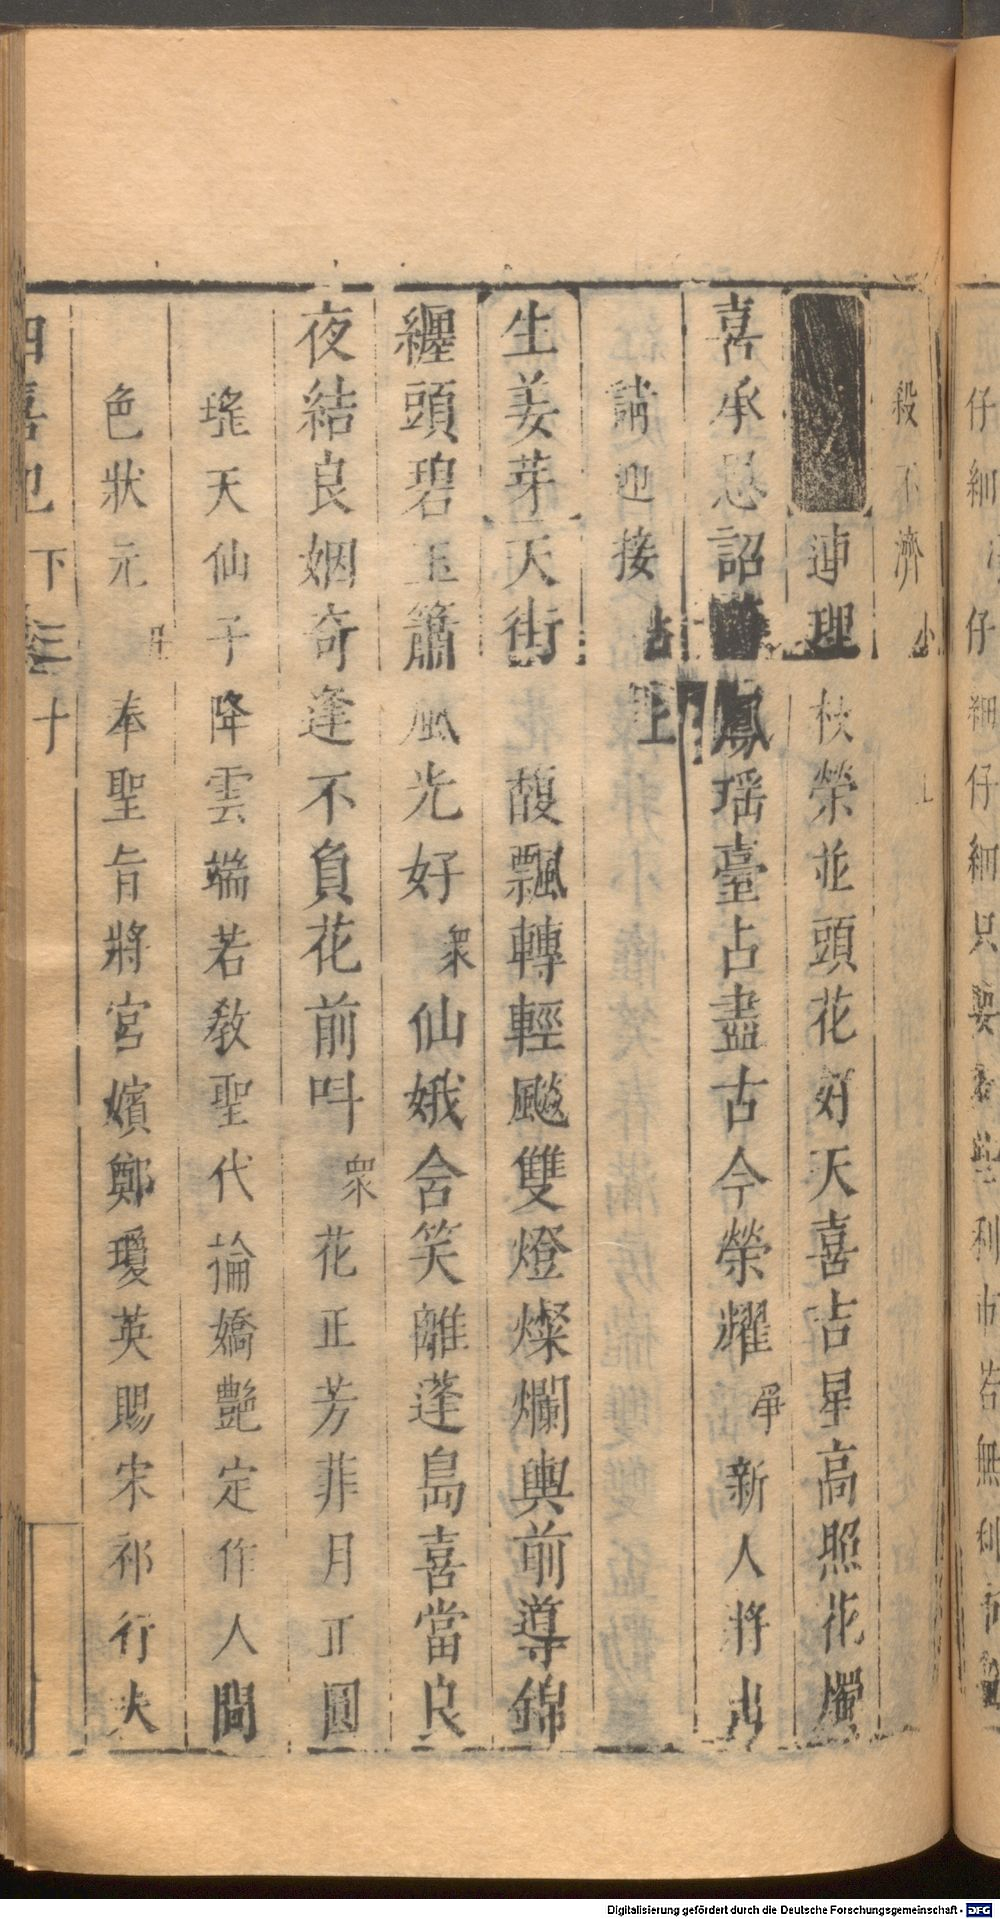 仔細
仔細仔細只要
利市若無利市
殺不濟
連理
枝榮並頭花好天喜吉星高照花爛
喜承恩詔
鳳瑶臺占盡古今榮耀
新人將出
請迎接
上
生姜芽
天街
馥飄轉輕颸雙燈燦爛輿前導錦
纏頭碧玉簫風光好
衆
仙娥含笑離蓬島喜當良
夜結良姻奇逢不負花前叫
衆
花正芳菲月正圓
瑤天仙子降雲端若教聖代掄嬌艷定作人間
色狀元
奉聖旨將宮嬪鄭瓊英賜宋祁行夫
四喜記
下卷
十
Digitalisierung gefördert durch die Deutsche Forschungsgemeinschaft - DFG